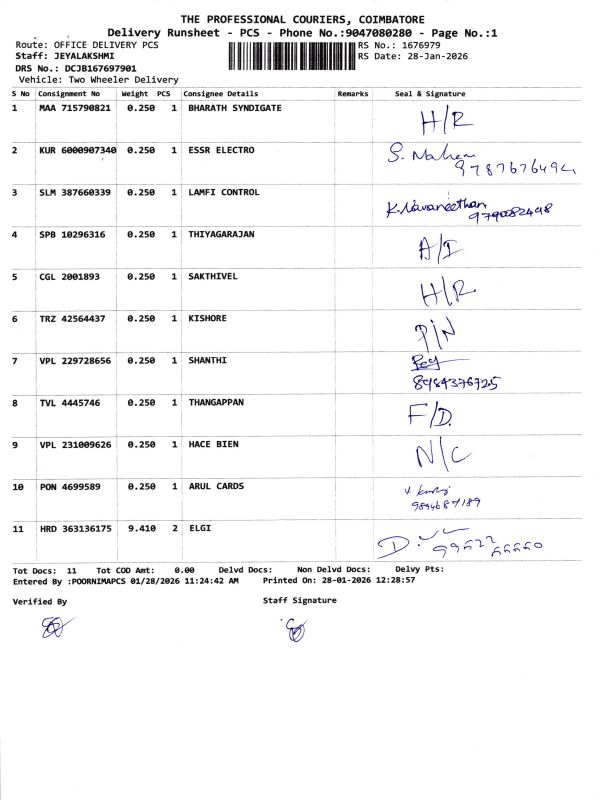 THE PROFESSIONAL COURIERS, COIMBATORE
Delivery Runsheet - PCS - Phone No.:9047080280 - Page No.:1
Route: OFFICE DELIVERY PCS RS No.: 1676979
Staff: JEYALAKSHMI RS Date: 28-Jan-2026
DRS No.: DCJB167697901
Vehicle: Two Wheeler Delivery
S No Consignment No Weight PCS Consignee Details Remarks Seal & Signature
1 MAA 715790821 0.250 1 BHARATH SYNDIGATE H/R
2 KUR 6000907340 0.250 1 ESSR ELECTRO S. Mahen
9787676494
3 SLM 387660339 0.250 1 LAMFI CONTROL K.Navaneethan
979082498
4 SPB 10296316 0.250 1 THIYAGARAJAN A/I
5 CGL 2001893 0.250 1 SAKTHIVEL H/R
6 TRZ 42564437 0.250 1 KISHORE P/N
7 VPL 229728656 0.250 1 SHANTHI
8984376725
8 TVL 4445746 0.250 1 THANGAPPAN F/D.
9 VPL 231009626 0.250 1 HACE BIEN N/C
10 PON 4699589 0.250 1 ARUL CARDS
9894687189
11 HRD 363136175 9.410 2 ELGI
Tot Docs: 11 Tot COD Amt: 0.00 Delvd Docs: Non Delvd Docs: Delvy Pts:
Entered By :POORNIMAPCS 01/28/2026 11:24:42 AM Printed On: 28-01-2026 12:28:57
Verified By Staff Signature